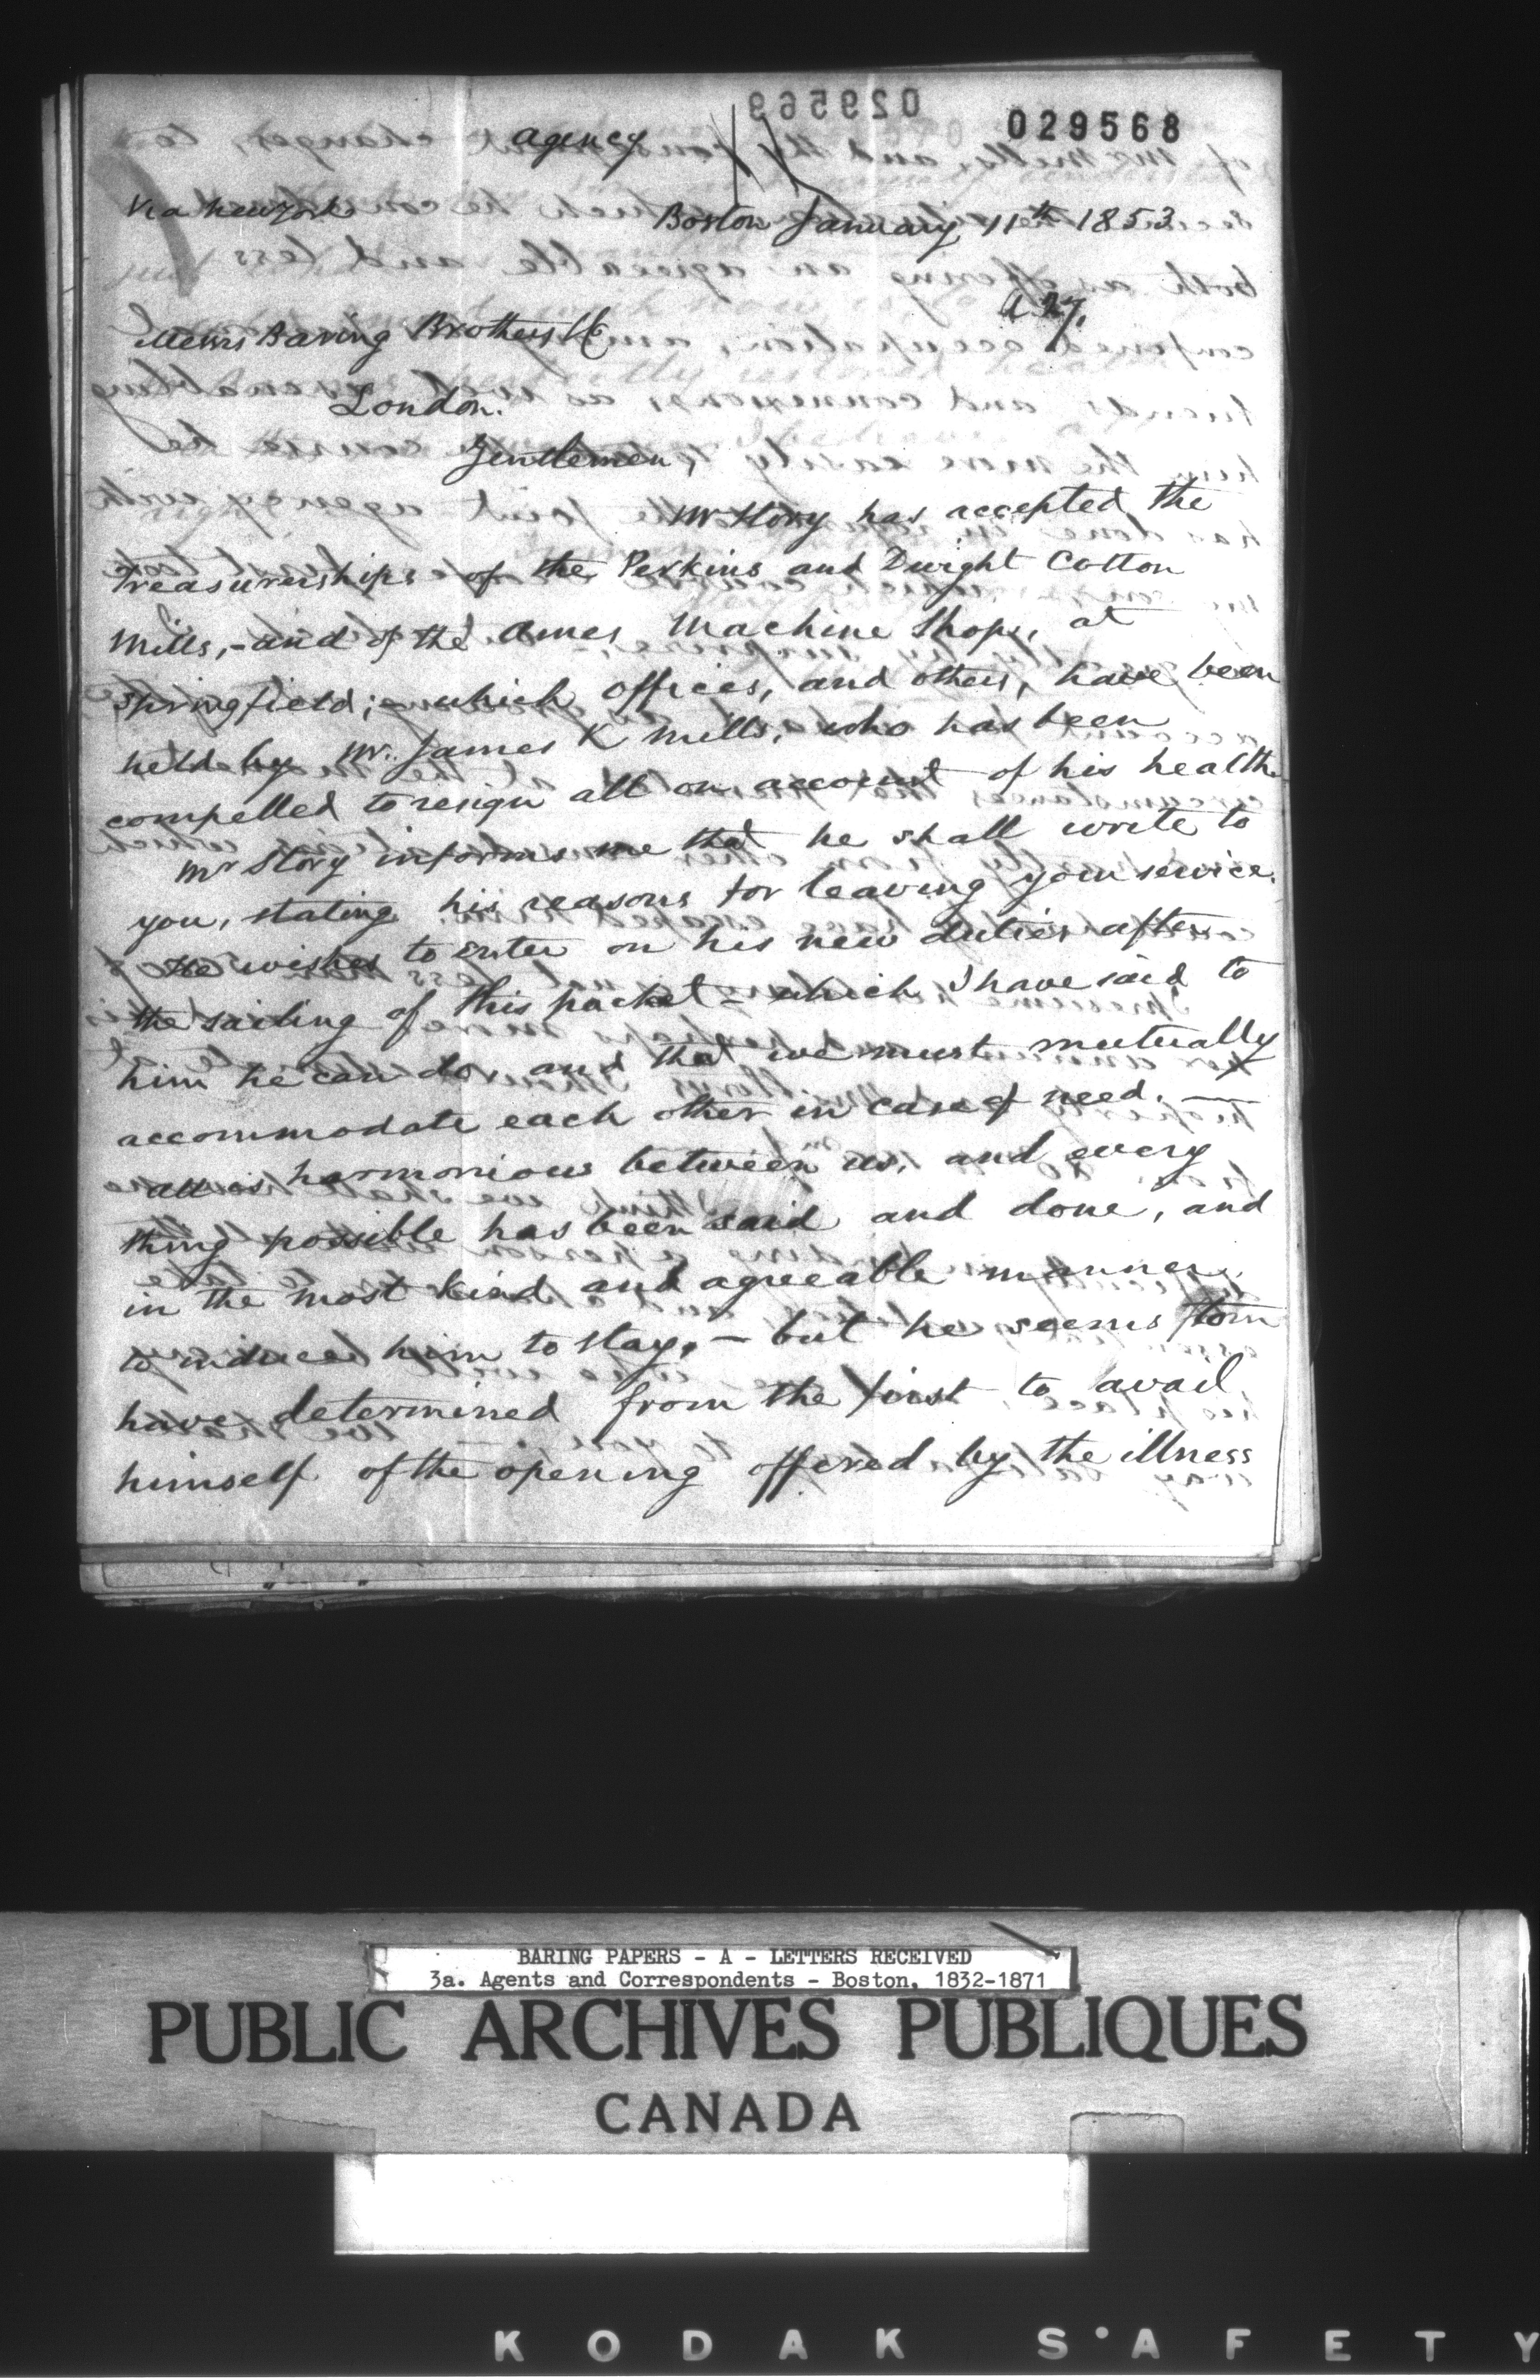 029569
029568
agency
Via New York
Boston January 11th 1853
A 27,
Messrs Baring Brothers & Co
London.
Gentlemen,
Mr Story has accepted the
Treasurerships of the Perkins and Dwight Cotton
Mills,- and of the Ames Machine Shops, at
Springfield; - which offices, and others, have been
held by Mr. James K Mills, who has been
compelled to resign all on account of his health.
Mr Story informs me that he shall write to
you, stating his reasons for leaving your service.
He wishes to enter on his new duties after
the sailing of this packet - which I have said to
him he can do, and that we must mutually
accommodate each other in case of need. —
all is harmonious between us, and every
thing possible has been said and done, and
in the most kind and agreeable manner,
to induce him to stay, - but he seems to
have determined from the first to avail
himself of the opening offered by the illness
BARING PAPERS - A - LETTERS RECEIVED
3a. Agents and Correspondents - Boston, 1832-1871
PUBLIC ARCHIVES PUBLIQUES
CANADA
KODAK S'AFETY